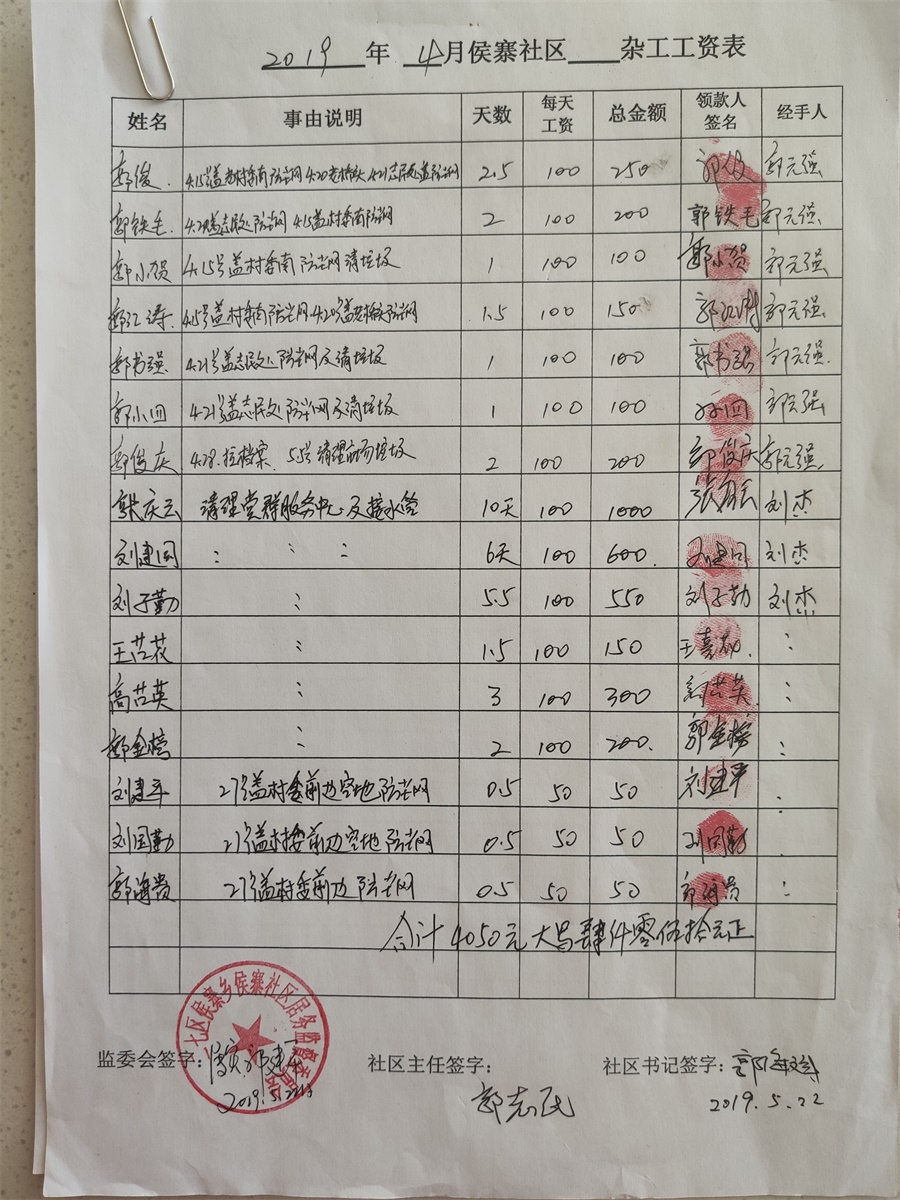 2019 年 4月侯寨社区 杂工工资表
姓名 事由说明 天数 每天工资 总金额 领款人签名 经手人
郭俊. 4.15号盖老村委南防尘网 4.20老桥头 4.21志民处盖防尘网 2.5 100 250 郭俊 郭元强
郭铁毛. 4.20盖志民处防尘网 4.15村委南防尘网 2 100 200 郭铁毛 郭元强
郭小贺 4.15号盖村委南防尘网清垃圾 1 100 100 郭小贺 郭元强
郭江涛. 4.15号盖村委南防尘网 4.20号盖老桥头防尘网 1.5 100 150 郭江涛 郭元强
郭书强 4.21号盖志民处防尘网及清垃圾 1 100 100 郭书强 郭元强.
郭小四 4.21号盖志民处防尘网及清垃圾 1 100 100 小四 郭元强
郭俊庆 4.28.拉档案. 5.5号清理南场垃圾 2 100 200 郭俊庆 郭元强.
张庆云 清理党群服务中心及接水管 10天 100 1000 张庆云 刘杰
刘建国 : : : 6天 100 600. 刘建国 刘杰
刘子勤 : 5.5 100 550 刘子勤 刘杰
王喜花 : 1.5 100 150 王喜花. :
高喜英 : 3 100 300 高喜英. :
郭金榜 : 2 100 200. 郭金榜 :
刘建平 27号盖村委前边空地防尘网 0.5 50 50 刘建平 .
刘国勤 27号盖村委前边空地防尘网 0.5 50 50 刘国勤 .
郭海贵 27号盖村委前边防尘网 0.5 50 50 郭海贵 :
合计 4050元 大写肆仟零伍拾元正
七区侯寨乡侯寨社区居务监督委员会
监委会签字:
2019.5.22
社区主任签字: 郭志民
社区书记签字:
2019.5.22